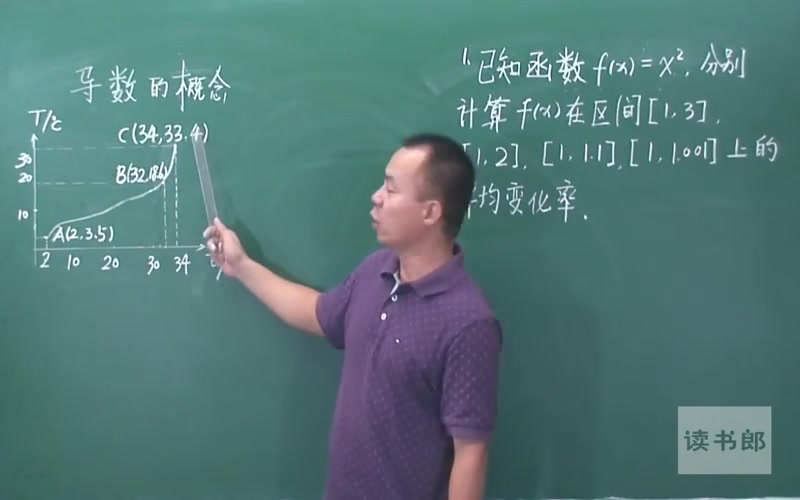 导数的概念
T/℃
C(34,33.4)
30
B(32,18.6)
20
10
A(2,3.5)
2 10 20 30 34
1.已知函数f(x)=x²,分别
计算f(x)在区间[1,3],
[1,2],[1,1.1],[1,1.001]上的
平均变化率.
读书郎